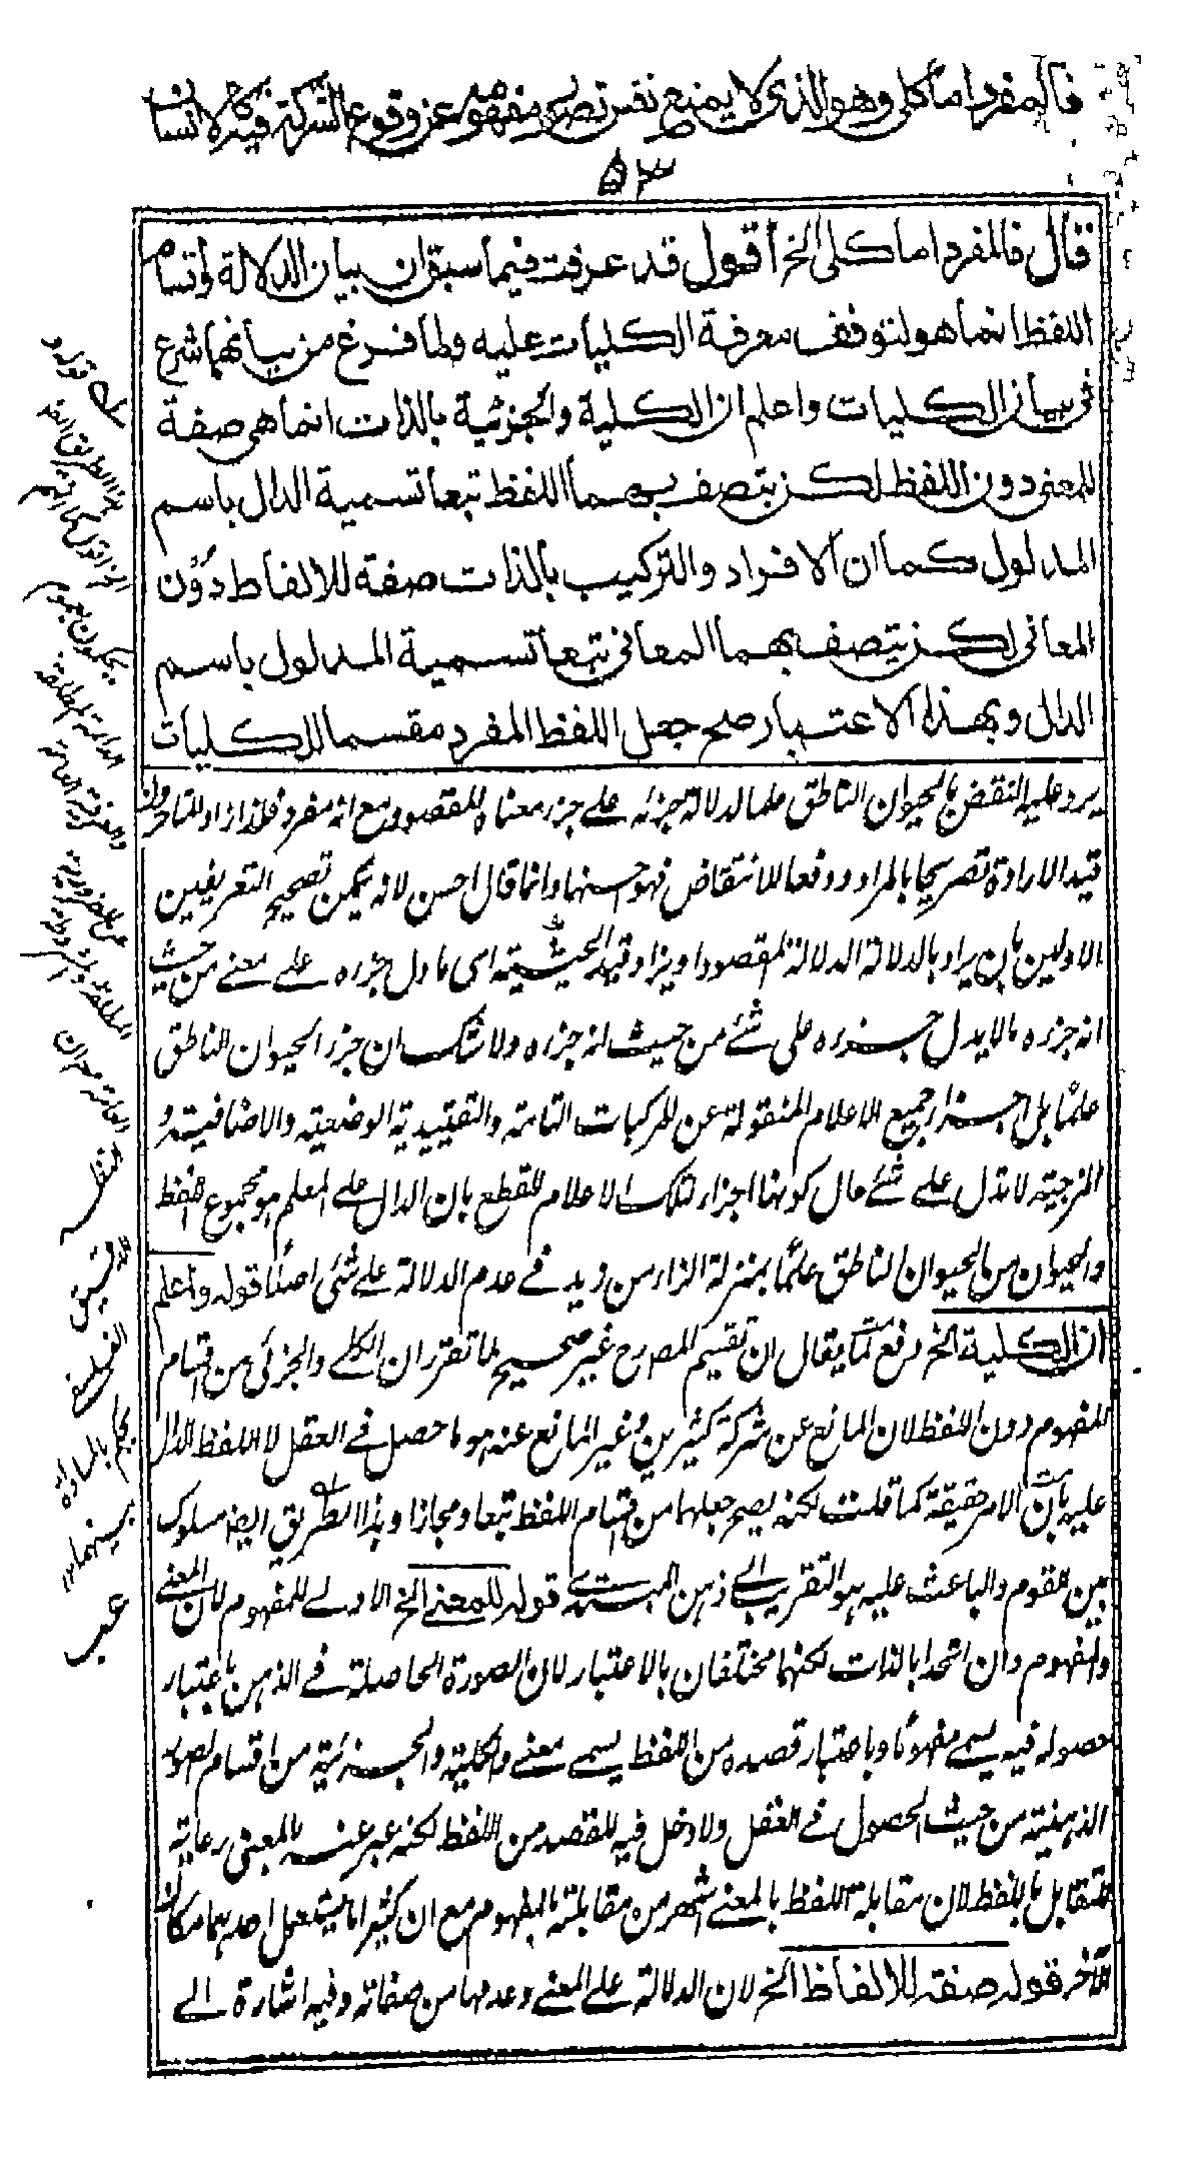 فالمفرد اما كلى وهو الذى لا يمنع نفس تصور مفهومه عن وقوع الشركة فيه كالانسان
٥٣
قال فالمفرد اما كلى الخ أقول قد عرفت فيما سبق ان بيان الدلالة واقسام
اللفظ انما هو لتوقف معرفة الكليات عليه ولما فرغ من بيانهما شرع
فى بيان الكليات واعلم ان الكلية والجزئية بالذات انما هى صفة
للمعنى دون اللفظ لكن يتصف بهما اللفظ تبعا تسمية الدال باسم
المدلول كما ان الافراد والتركيب بالذات صفة للالفاظ دون
المعانى لكن يتصف بهما المعانى تبعا تسمية المدلول باسم
الدال وبهذا الاعتبار صح جعل اللفظ المفرد مقسما للكليات
يرد عليه النقض بالحيوان الناطق علما لدلالة جزئه على جزء معناه المقصود مع انه مفرد فلذا زاد المتاخرون
قيد الارادة تصريحا بالمراد ودفعا للانتقاض فهو احسنها وانما قال احسن لانه يمكن تصحيح التعريفين
الاولين بان يراد بالدلالة الدلالة المقصودة او يزاد قيد الحيثية اى ما دل جزءه على معنى من حيث
انه جزءه مالا يدل جزءه على شئ من حيث انه جزءه ولا شك ان جزء الحيوان الناطق
علما بل اجزاء جميع الاعلام المنقولة عن المركبات التامة والتقييدية الوضعية والاضافية و
المزجية لا تدل على شئ حال كونها اجزاء تلك الاعلام للقطع بان الدال على المعلم هو مجموع اللفظ
والحيوان من الحيوان الناطق علما بمنزلة الزاء من زيد فى عدم الدلالة على شئ اصلا قوله واعلم
ان الكلية الخ دفع لما يقال ان تقسيم المصرح غير صحيح لما تقرر ان الكلى والجزئى من اقسام
المفهوم دون اللفظ لان المانع عن شركة كثيرين وغير المانع عنه هو ما حصل فى العقل لا اللفظ الدال
عليه بان الامر حقيقة كما قلت لكنه يصح جعلهما من اقسام اللفظ تبعا ومجازا وهذا الطريق ايضا مسلوك
بين القوم والباعث عليه هو التقريب الى ذهن المبتدى قوله للمعنى الخ الاولى للمفهوم لان المعنى
والمفهوم وان اتحدا بالذات لكنهما مختلفان بالاعتبار لان الصورة الحاصلة فى الذهن باعتبار
حصوله فيه يسمى مفهوما وباعتبار قصده من اللفظ يسمى معنى والكلية والجزئية من اقسام الصور
الذهنية من حيث الحصول فى العقل ولا دخل فيه للقصد من اللفظ لكنه عبر عنه بالمعنى رعاية
للتقابل باللفظ لان مقابلة اللفظ بالمعنى اشهر من مقابلته بالمفهوم مع ان كثيرا ما يستعمل احدهما مكان
الآخر قوله صفة للالفاظ الخ لان الدلالة على المعنى وعدمها من صفاته وفيه اشارة الى
قوله و
هذا الطريق ايضا